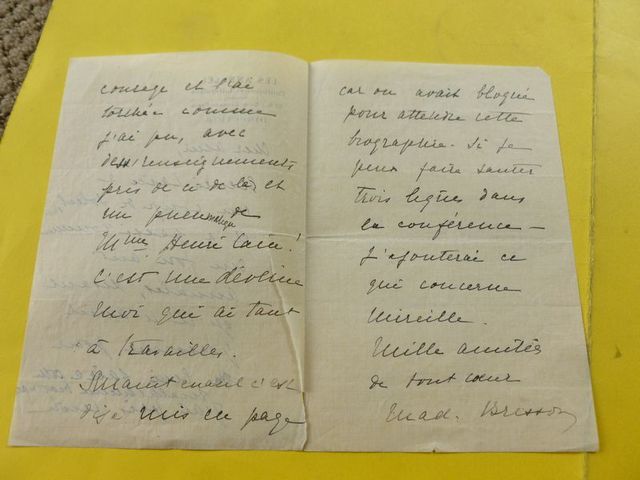 courage et l'ai
torchée comme
j'ai pu, avec
des renseignements
pris de ci de là et
un pneumatique de
Mme Henri Cain!
c'est une déveine
moi qui ai tant
à travailler.
Maintenant c'est
déjà mis en page
car on avait bloqué
pour attendre cette
biographie. Si je
peux faire sauter
trois lignes dans
la conférence –
j'ajouterai ce
qui concerne
Mireille.
Mille amitiés
de tout cœur
Mad. Bresson